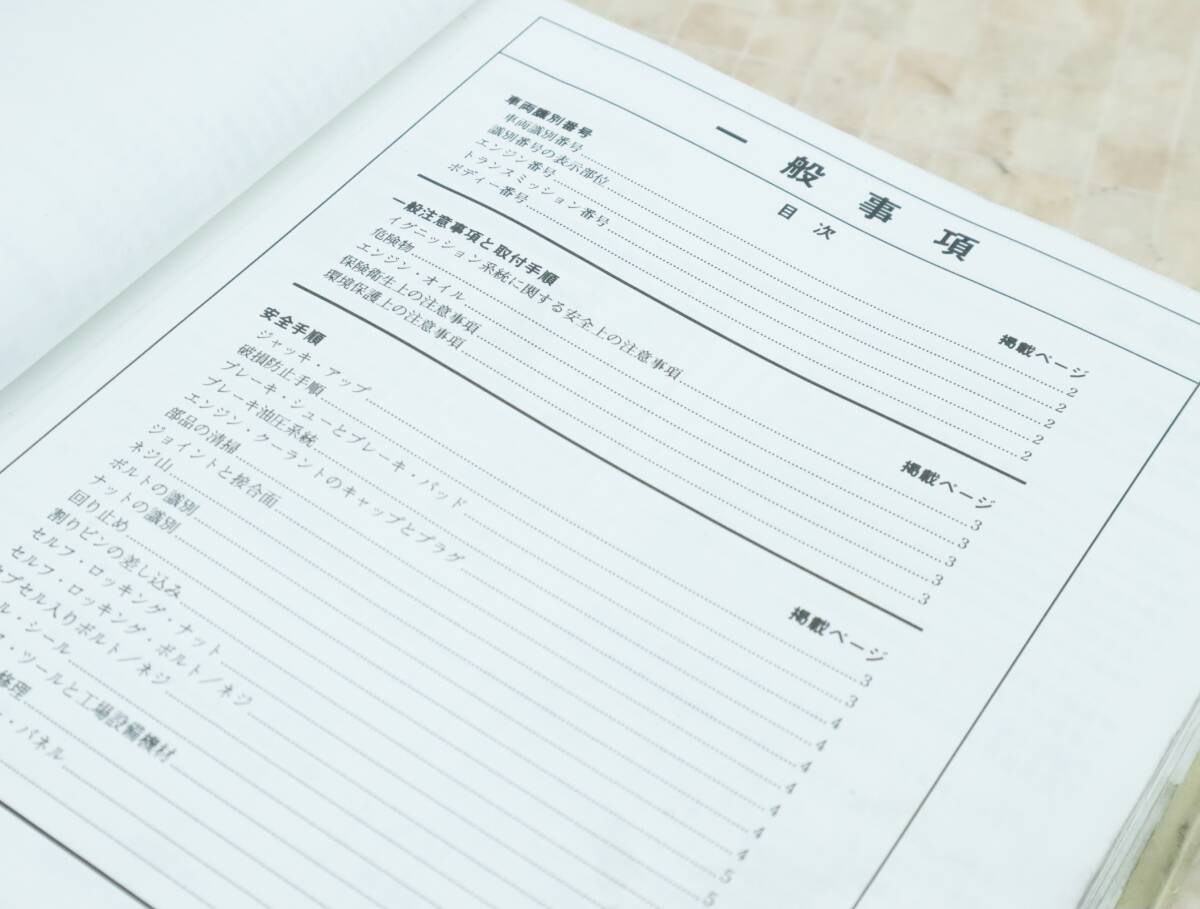 一般事項
目次
車両識別番号 掲載ページ
車両識別番号 2
識別番号の表示部位 2
エンジン番号 2
トランスミッション番号 2
ボディー番号 2
一般注意事項と取付手順 掲載ページ
イグニッション系統に関する安全上の注意事項 3
危険物 3
エンジン・オイル 3
保険衛生上の注意事項 3
環境保護上の注意事項 3
安全手順 掲載ページ
ジャッキ・アップ 3
破損防止手順 3
ブレーキ・シューとブレーキ・パッド 4
ブレーキ油圧系統 4
エンジン・クーラントのキャップとプラグ 4
部品の清掃 4
ジョイントと接合面 4
ネジ山 4
ボルトの識別 4
ナットの識別 5
回り止め 5
割りピンの差し込み
セルフ・ロッキング・ナット
セルフ・ロッキング・ボルト／ネジ
プセル入りボルト／ネジ
ル・シール
・ツールと工場設備機材
修理
・パネル